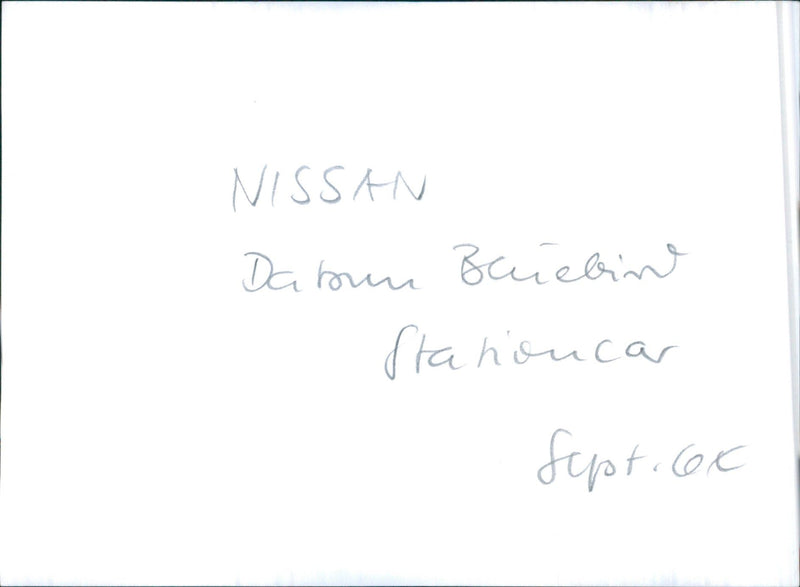 NISSAN
Datsun Bluebird
Stationcar
Sept.